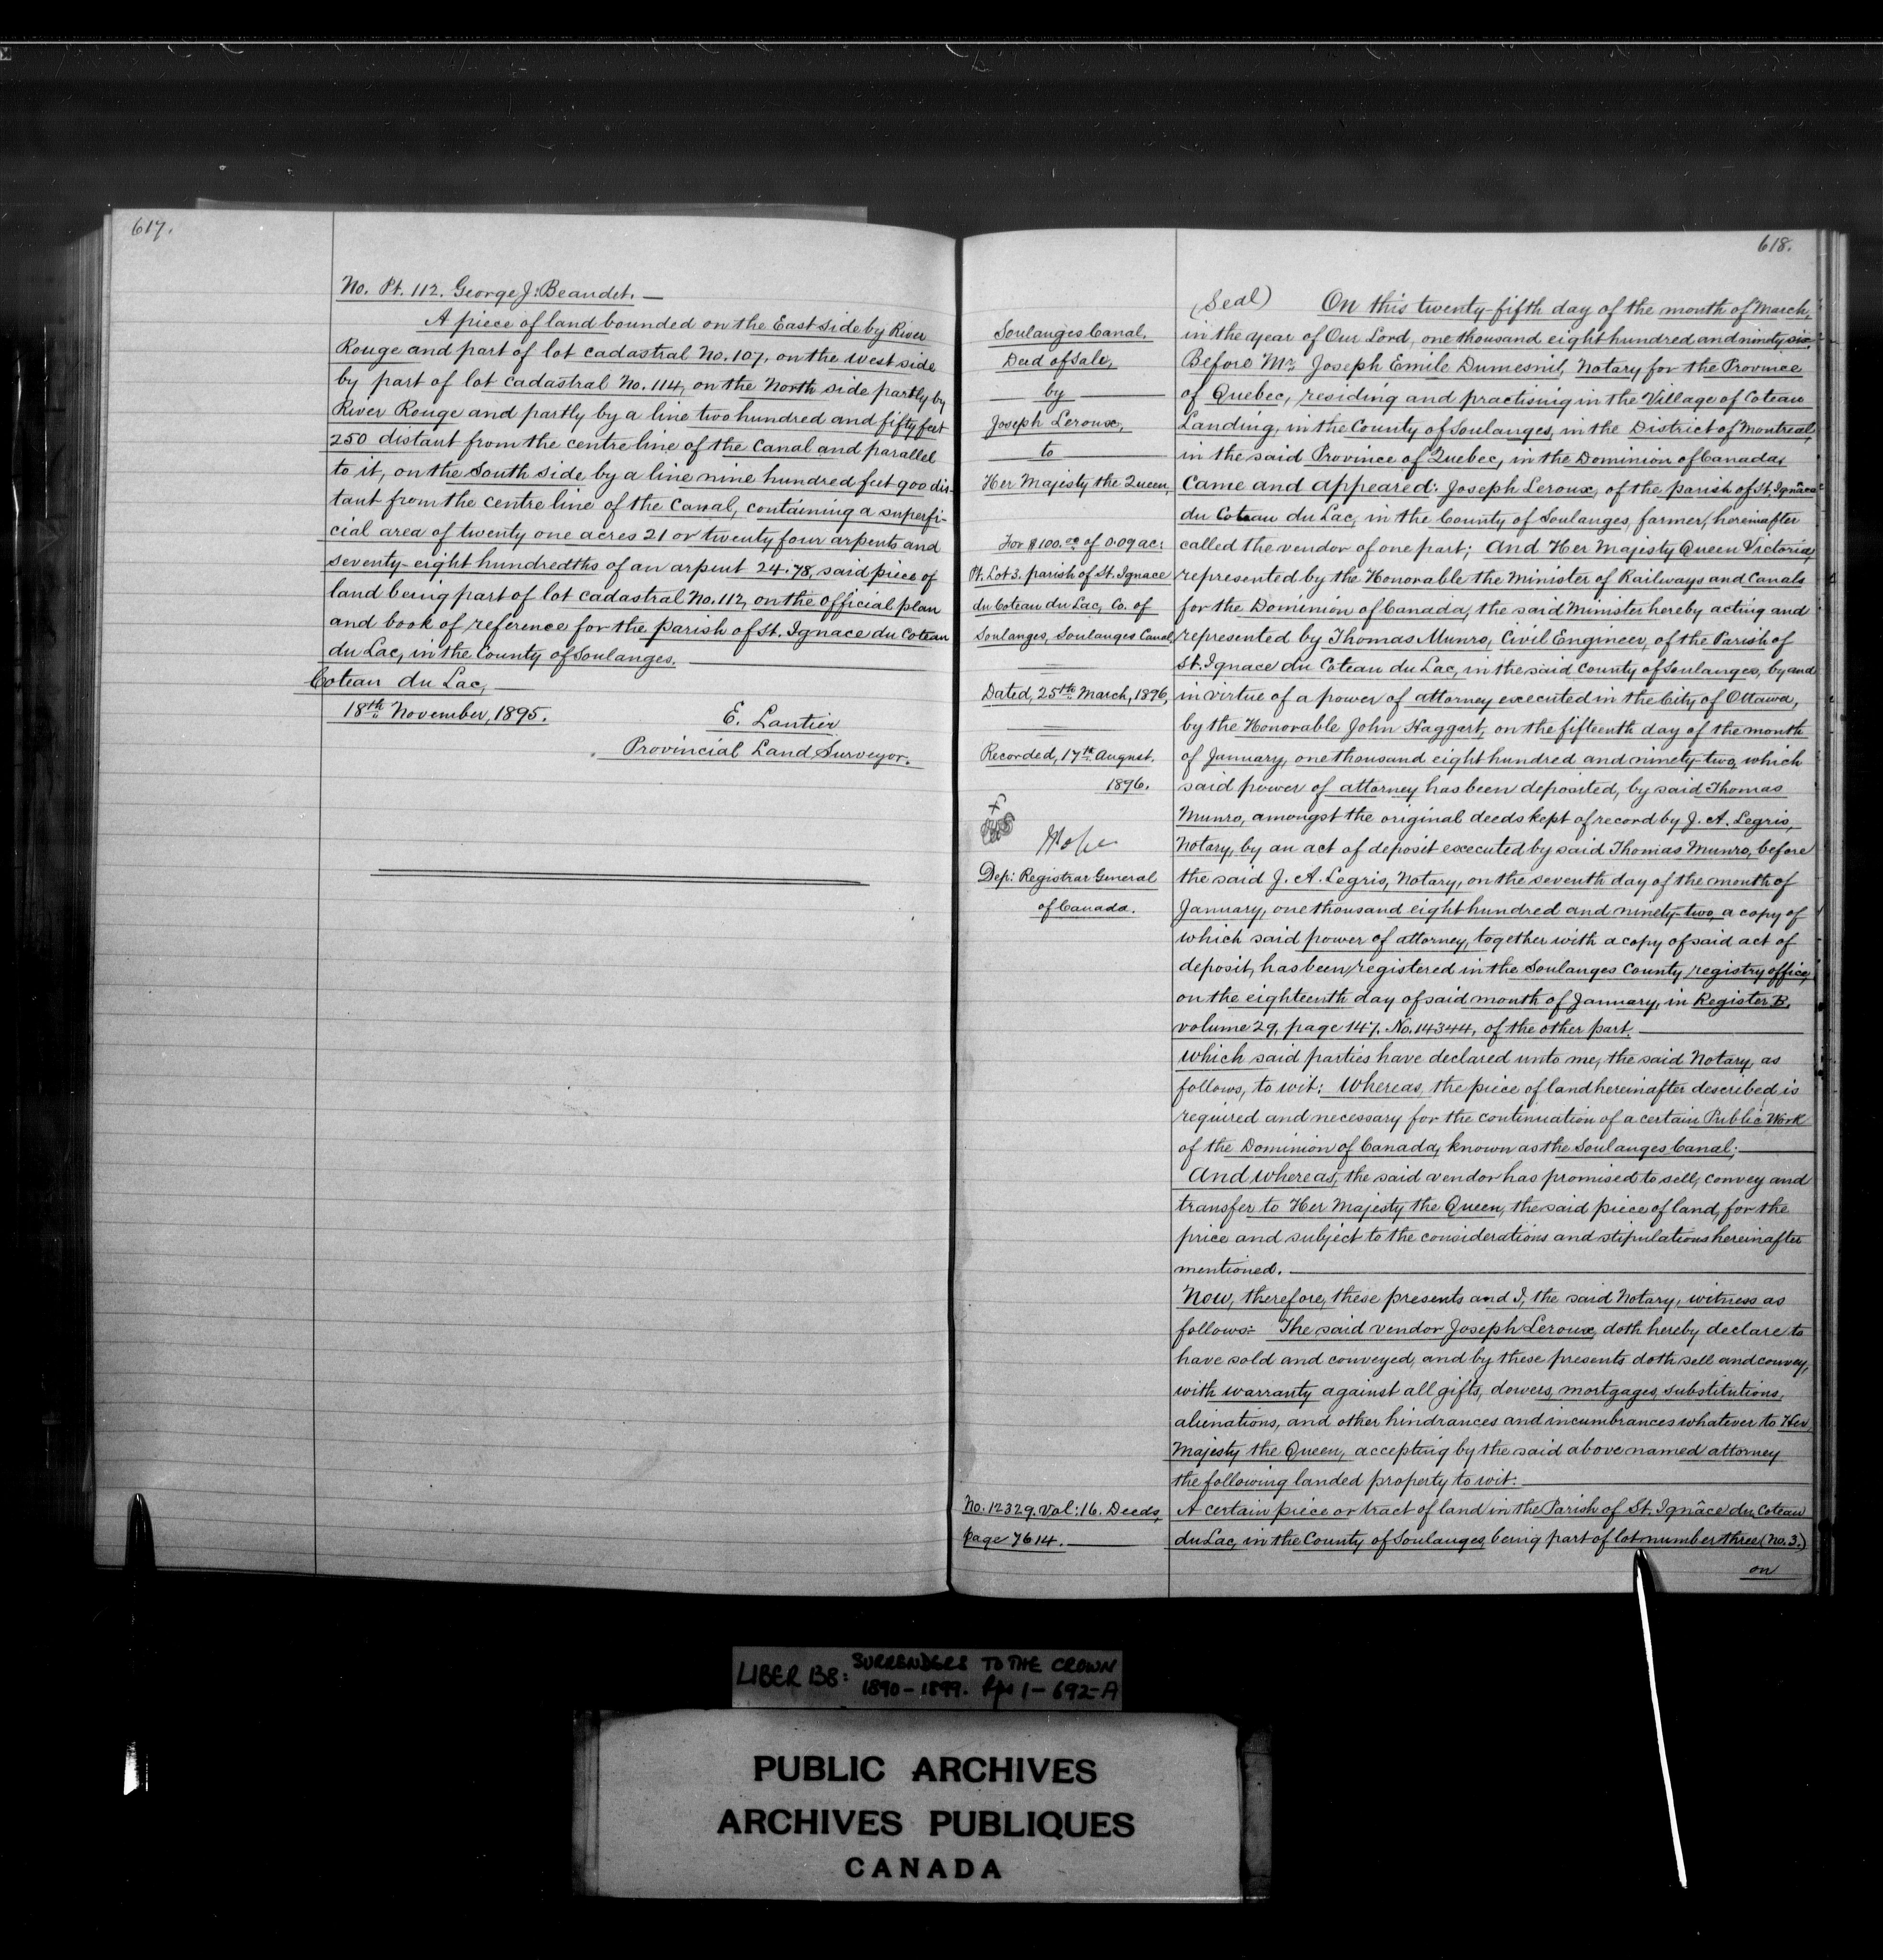 617.
No. Pt. 112. George J. Beaudet. —
A piece of land bounded on the East side by River
Rouge and part of lot cadastral No. 107, on the west side
by part of lot cadastral No. 114, on the North side partly by
River Rouge and partly by a line two hundred and fifty feet
250 distant from the centre line of the Canal and parallel
to it, on the South side by a line nine hundred feet 900 dis-
tant from the centre line of the Canal, containing a superfi-
cial area of twenty one acres 21 or twenty four arpents and
seventy-eight hundredths of an arpent 24.78, said piece of
land being part of lot cadastral No. 112, on the official plan
and book of reference for the parish of St. Ignace du Coteau
du Lac, in the County of Soulanges.
Coteau du Lac,
18th November, 1895.
E. Lantier
Provincial Land Surveyor.
618.
Soulanges Canal.
Deed of Sale,
by
Joseph Leroux,
to
Her Majesty the Queen,
For $100.00 of 0.09 ac:
Pt. Lot 3. parish of St. Ignace
du Coteau du Lac, Co. of
Soulanges, Soulanges Canal,
Dated, 25th March, 1896,
Recorded, 17th August.
1896.
Dep: Registrar General
of Canada.
No. 12329. Vol: 16. Deeds,
page 7614.
(Seal) On this twenty-fifth day of the month of March,
in the year of Our Lord, one thousand eight hundred and ninety six.
Before Mr. Joseph Emile Dumesnil, Notary for the Province
of Quebec, residing and practising in the Village of Coteau
Landing, in the County of Soulanges, in the District of Montreal,
in the said Province of Quebec, in the Dominion of Canada,
Came and appeared: Joseph Leroux, of the parish of St. Ignâce
du Coteau du Lac, in the County of Soulanges, farmer, hereinafter
called the vendor of one part; And Her Majesty Queen Victoria,
represented by the Honorable the Minister of Railways and Canals
for the Dominion of Canada, the said Minister hereby acting and
represented by Thomas Munro, Civil Engineer, of the Parish of
St. Ignace du Coteau du Lac, in the said County of Soulanges, by and
in virtue of a power of attorney executed in the City of Ottawa,
by the Honorable John Haggart, on the fifteenth day of the month
of January, one thousand eight hundred and ninety-two, which
said power of attorney has been deposited, by said Thomas
Munro, amongst the original deeds kept of record by J. A. Legris,
Notary, by an act of deposit executed by said Thomas Munro, before
the said J. A. Legris, Notary, on the seventh day of the month of
January, one thousand eight hundred and ninety-two, a copy of
which said power of attorney, together with a copy of said act of
deposit, has been registered in the Soulanges County registry office,
on the eighteenth day of said month of January, in Register B.
volume 29, page 147. No. 14344, of the other part.
which said parties have declared unto me, the said Notary, as
follows, to wit: Whereas, the piece of land hereinafter described is
required and necessary for the continuation of a certain Public Work
of the Dominion of Canada, known as the Soulanges Canal;
And whereas, the said vendor has promised to sell, convey and
transfer to Her Majesty the Queen, the said piece of land, for the
price and subject to the considerations and stipulations hereinafter
mentioned.
Now, therefore, these presents and I, the said Notary, witness as
follows:- The said vendor Joseph Leroux, doth hereby declare to
have sold and conveyed, and by these presents doth sell and convey,
with warranty against all gifts, dowers, mortgages, substitutions,
alienations, and other hindrances and incumbrances whatever to Her
Majesty the Queen, accepting by the said above named attorney
the following landed property to wit:
A certain piece or tract of land in the Parish of St. Ignâce du Coteau
du Lac, in the County of Soulanges, being part of lot number three (No. 3.)
on
LIBER 138: SURRENDERS TO THE CROWN
1890-1899. Pgs 1-692-A
PUBLIC ARCHIVES
ARCHIVES PUBLIQUES
CANADA